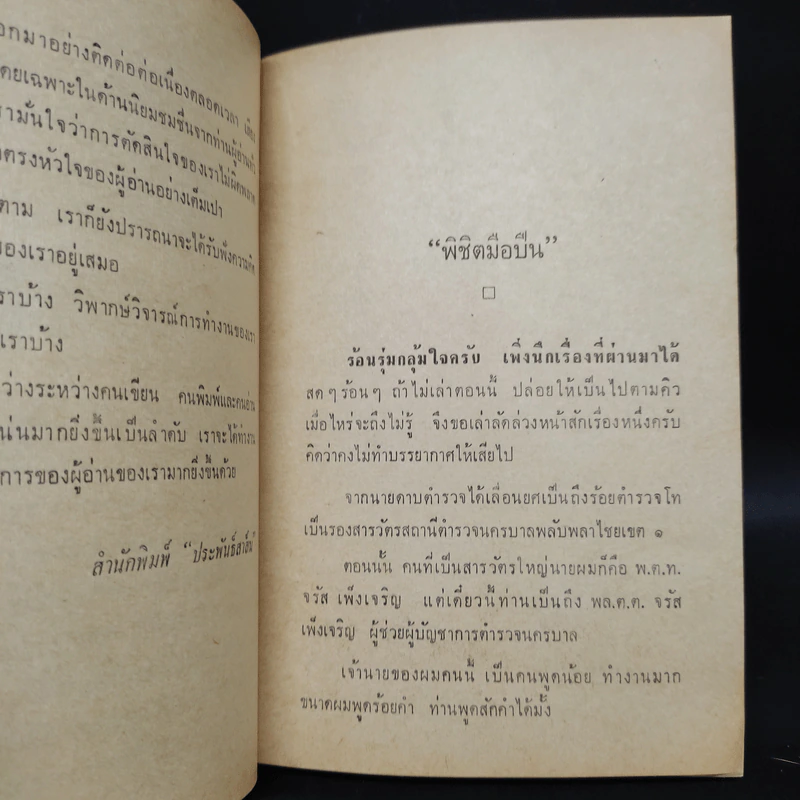 อกมาอย่างติดต่อต่อเนื่องตลอดเวลา
ดยเฉพาะในด้านนิยมชมชื่นจากท่านผู้อ่าน
รามั่นใจว่าการตัดสินใจของเราไม่ผิดพลาด
ตรงหัวใจของผู้อ่านอย่างเต็มเปา
ตาม เราก็ยังปรารถนาจะได้รับฟังความคิด
ของเราอยู่เสมอ
ราบ้าง วิพากษ์วิจารณ์การทำงานของเรา
เราบ้าง
ว่างระหว่างคนเขียน คนพิมพ์และคนอ่าน
น่นมากยิ่งขึ้นเป็นลำดับ เราจะได้ทำงาน
การของผู้อ่านของเรามากยิ่งขึ้นด้วย
สำนักพิมพ์ "ประพันธ์สาส์น"
"พิชิตมือปืน"
ร้อนรุ่มกลุ้มใจครับ เพิ่งนึกเรื่องที่ผ่านมาได้
สดๆร้อนๆ ถ้าไม่เล่าตอนนี้ ปล่อยให้เป็นไปตามคิว
เมื่อไหร่จะถึงไม่รู้ จึงขอเล่าลัดล่วงหน้าสักเรื่องหนึ่งครับ
คิดว่าคงไม่ทำบรรยากาศให้เสียไป
จากนายดาบตำรวจได้เลื่อนยศเป็นถึงร้อยตำรวจโท
เป็นรองสารวัตรสถานีตำรวจนครบาลพลับพลาไชยเขต ๑
ตอนนั้น คนที่เป็นสารวัตรใหญ่นายผมก็คือ พ.ต.ท.
จรัส เพ็งเจริญ แต่เดี๋ยวนี้ท่านเป็นถึง พล.ต.ต. จรัส
เพ็งเจริญ ผู้ช่วยผู้บัญชาการตำรวจนครบาล
เจ้านายของผมคนนี้ เป็นคนพูดน้อย ทำงานมาก
ขนาดผมพูดร้อยคำ ท่านพูดสักคำได้มั้ง